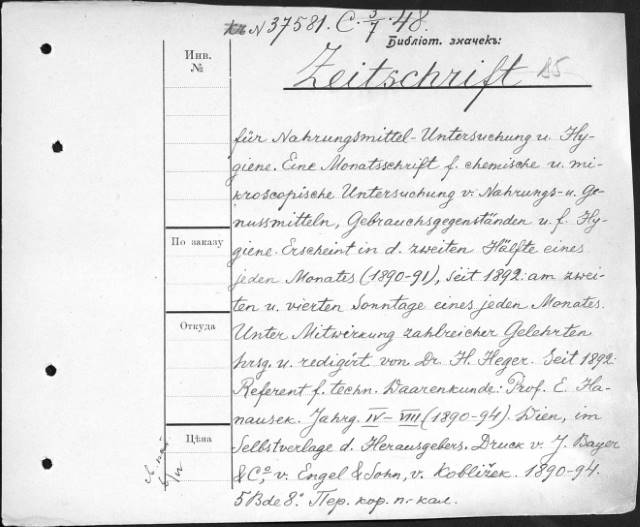 N 37581. C. 5/7. 48.
Библіот. значекъ:
Zeitschrift
85
Инв.
№
für Nahrungsmittel-Untersuchung u. Hy-
giene. Eine Monatsschrift f. chemische u. mi-
kroscopische Untersuchung v. Nahrungs- u. Ge-
nussmitteln, Gebrauchsgegenständen u. f. Hy-
По заказу
giene. Erscheint in d. zweiten Hälfte eines
jeden Monates (1890-91), seit 1892: am zwei-
ten u. vierten Sonntage eines jeden Monates.
Откуда
Unter Mitwirkung zahlreicher Gelehrten
hrsg. u. redigirt von Dr. H. Heger. Seit 1892:
Referent f. techn. Waarenkunde: Prof. E. Ha-
nausek. Jahrg. IV-VIII (1890-94). Wien, im
Цѣна
Selbstverlage d. Herausgebers. Druck v. J. Bayer
& Cº, v. Engel & Sohn, v. Kobližek. 1890-94.
5 Bde 8º. Пер. кор. п. кал.